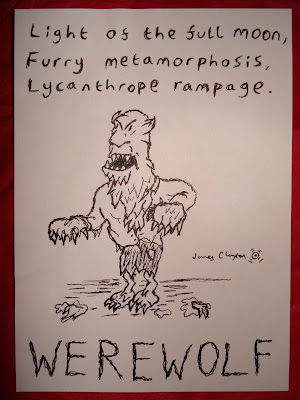 Light of the full moon,
Furry metamorphosis,
Lycanthrope rampage.
James
WEREWOLF